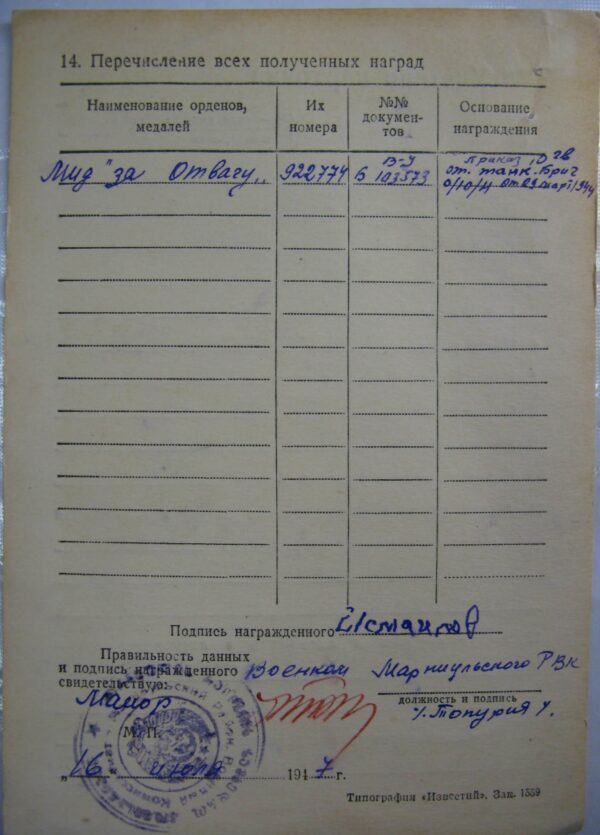 14. Перечисление всех полученных наград
Наименование орденов, медалей
Их номера
№№ докумен- тов
Основание награждения
Мид "за Отвагу„
922774
В-У
Б 103573
приказ 10 гв
от. танк. Бриг
от 29 март 1944
Подпись награжденного Исмаилов
Правильность данных
и подпись награжденного Военком Марнеульского РВК
свидетельствую:
Майор
должность и подпись
М. П. /.Топурия /.
„16 июля 1947 г.
Типография «Известий». Зак. 1559